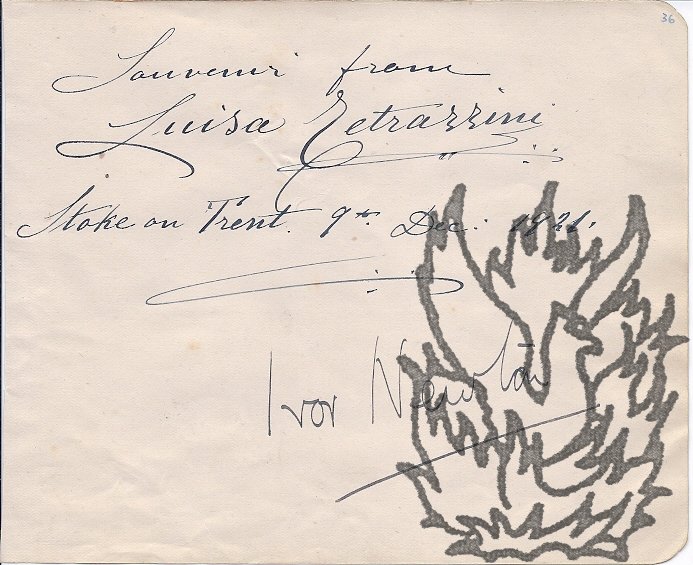 36
Souvenir from
Luisa Tetrazzini
Stoke on Trent. 9th Dec: 1921.
Ivor Newton